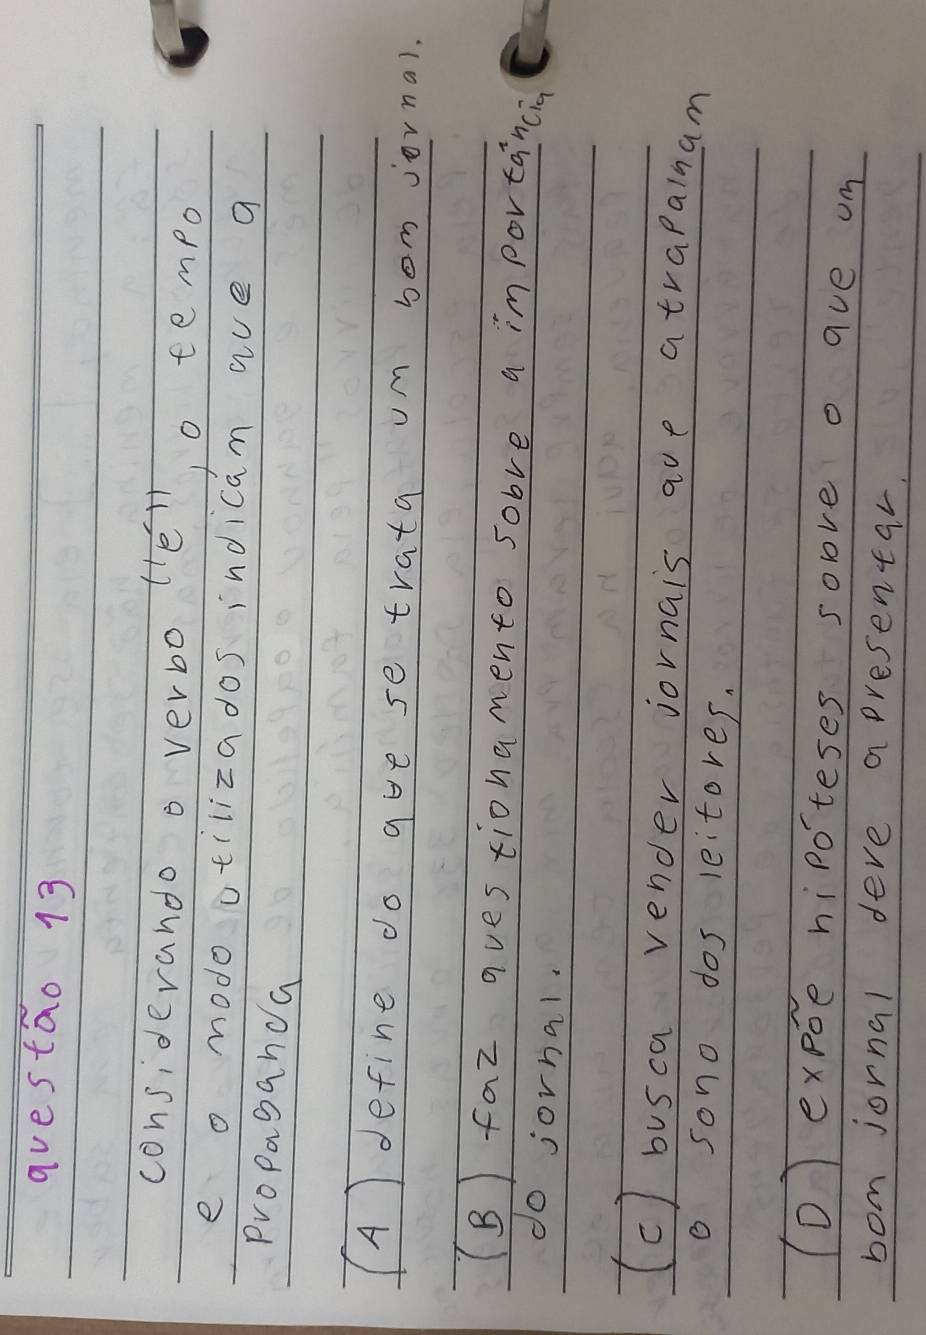 questão 13
considerando o verbo "é", o tempo
e o modo utilizados, indicam que a
propaganda
(A) define do que se trata um bom jornal.
(B) faz questionamento sobre a importância
do jornal.
(C) busca vender jornais que atrapalham
o sono dos leitores.
(D) expõe hipóteses sobre o que um
bom jornal deve apresentar.